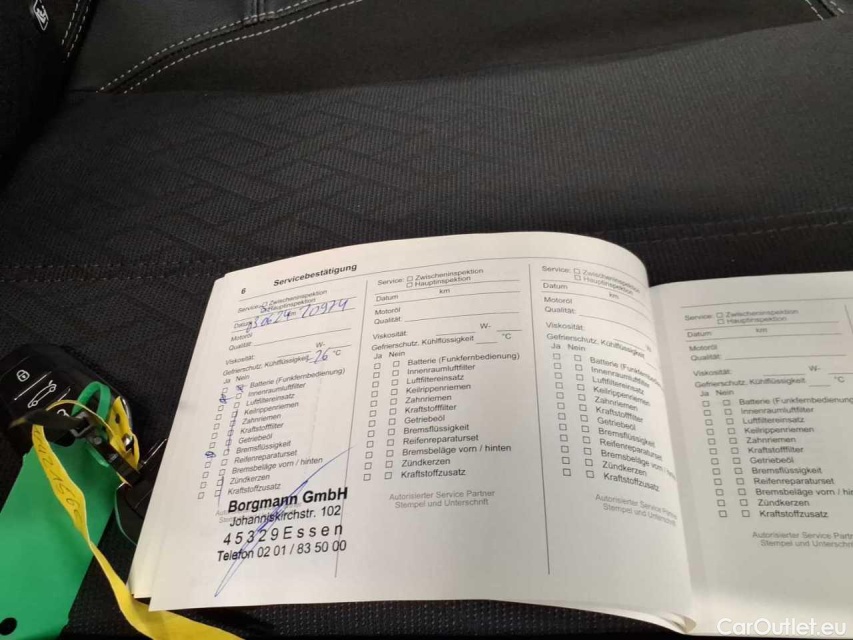 6 Servicebestätigung
Service: Zwischeninspektion
Hauptinspektion
Datum 3.06.24 km 20979
Motoröl
Qualität:
Viskosität: W-
Gefrierschutz, Kühlflüssigkeit -26 °C
Ja Nein
Batterie (Funkfernbedienung)
Innenraumluftfilter
Luftfiltereinsatz
Keilrippenriemen
Zahnriemen
Kraftstofffilter
Getriebeöl
Bremsflüssigkeit
Reifenreparaturset
Bremsbeläge vorn / hinten
Zündkerzen
Kraftstoffzusatz
Borgmann GmbH
Johanniskirchstr. 102
45329 Essen
Telefon 02 01 / 83 50 00
Service: Zwischeninspektion
Hauptinspektion
Datum km
Motoröl
Qualität:
Viskosität: W-
Gefrierschutz, Kühlflüssigkeit °C
Ja Nein
Batterie (Funkfernbedienung)
Innenraumluftfilter
Luftfiltereinsatz
Keilrippenriemen
Zahnriemen
Kraftstofffilter
Getriebeöl
Bremsflüssigkeit
Reifenreparaturset
Bremsbeläge vorn / hinten
Zündkerzen
Kraftstoffzusatz
Autorisierter Service Partner
Stempel und Unterschrift
Service: Zwischeninspektion
Hauptinspektion
Datum km
Motoröl
Qualität:
Viskosität:
Gefrierschutz, Kühlflüssigkeit
Ja Nein
Batterie (Funkfernbedienung
Innenraumluftfilter
Luftfiltereinsatz
Keilrippenriemen
Zahnriemen
Kraftstofffilter
Getriebeöl
Bremsflüssigkeit
Reifenreparaturset
Bremsbeläge vorn
Zündkerzen
Kraftstoffzusatz
Autorisierter Service Partner
Stempel und Unterschrift
Service: Zwischeninspektion
Hauptinspektion
Datum km
Motoröl
Qualität:
Viskosität: W-
Gefrierschutz, Kühlflüssigkeit °C
Ja Nein
Batterie (Funkfernbedienung
Innenraumluftfilter
Luftfiltereinsatz
Keilrippenriemen
Zahnriemen
Kraftstofffilter
Getriebeöl
Bremsflüssigkeit
Reifenreparaturset
Bremsbeläge vorn / hin
Zündkerzen
Kraftstoffzusatz
Autorisierter Service Partn
Stempel und Unterschri
CarOutlet.eu